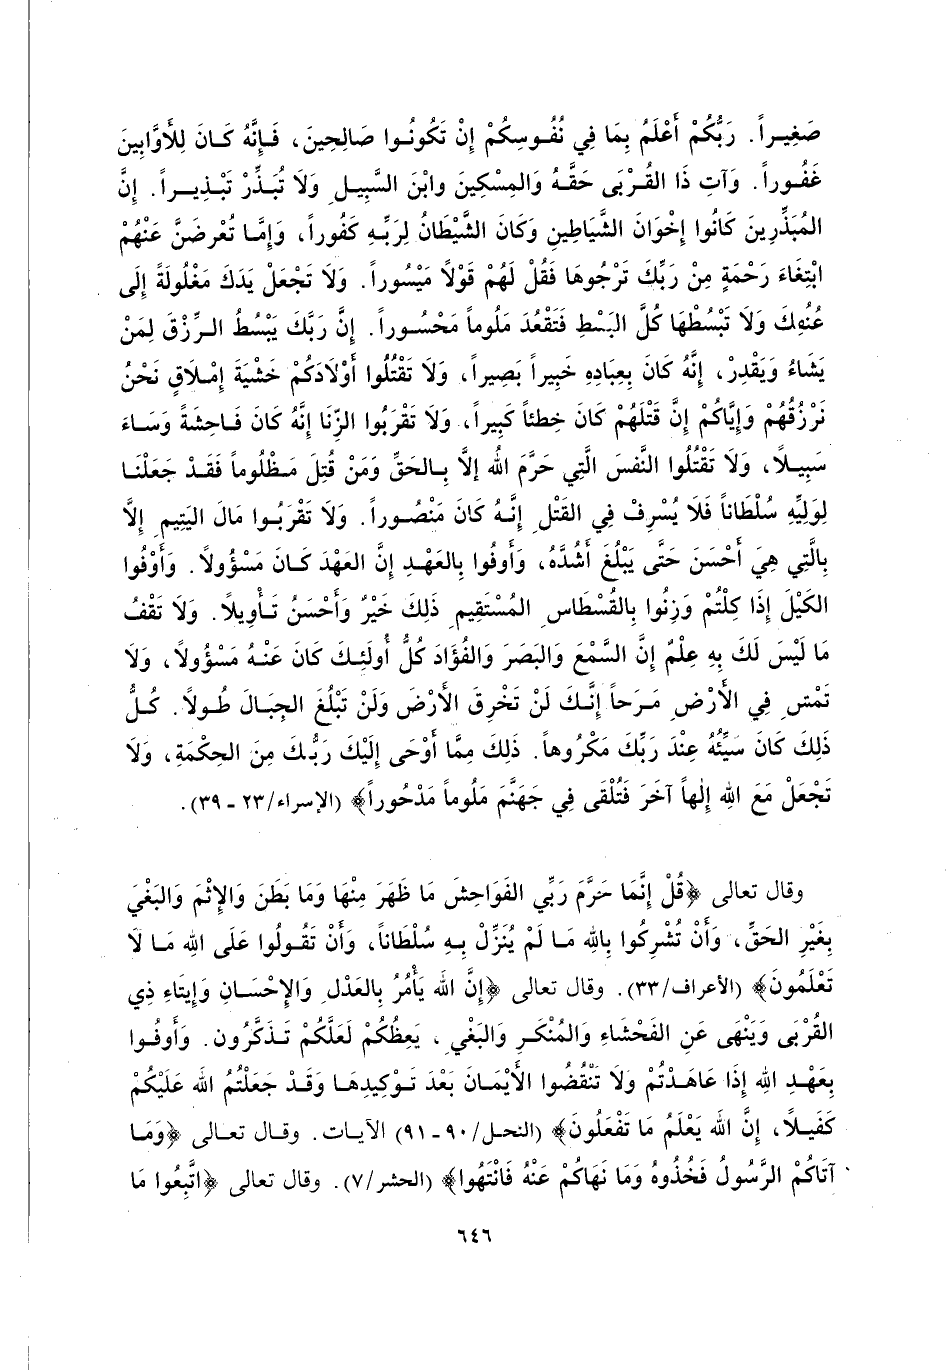 صَغِيراً. رَبُّكُمْ أَعْلَمُ بِمَا فِي نُفُوسِكُمْ إِنْ تَكُونُوا صَالِحِينَ، فَإِنَّهُ كَانَ لِلأَوَّابِينَ
غَفُوراً. وَآتِ ذَا القُرْبَى حَقَّهُ وَالمِسْكِينَ وابْنَ السَّبِيلِ وَلَا تُبَذِّرْ تَبْذِيراً. إِنَّ
المُبَذِّرِينَ كَانُوا إِخْوَانَ الشَّيَاطِينِ وَكَانَ الشَّيْطَانُ لِرَبِّهِ كَفُوراً، وَإِمَّا تُعْرِضَنَّ عَنْهُمْ
ابْتِغَاءَ رَحْمَةٍ مِنْ رَبِّكَ تَرْجُوهَا فَقُلْ لَهُمْ قَوْلًا مَيْسُوراً. وَلَا تَجْعَل يَدَكَ مَغْلُولَةً إِلَى
عُنُقِكَ وَلَا تَبْسُطْهَا كُلَّ البَسْطِ فَتَقْعُدَ مَلُوماً مَحْسُوراً. إِنَّ رَبَّكَ يَبْسُطُ الرِّزْقَ لِمَنْ
يَشَاءُ وَيَقْدِرُ، إِنَّهُ كَانَ بِعِبَادِهِ خَبِيراً بَصِيراً، وَلَا تَقْتُلُوا أَوْلَادَكُمْ خَشْيَةَ إِمْلَاقٍ نَحْنُ
نَرْزُقُهُمْ وَإِيَّاكُمْ إِنَّ قَتْلَهُمْ كَانَ خِطْئاً كَبِيراً، وَلَا تَقْرَبُوا الزِّنَا إِنَّهُ كَانَ فَاحِشَةً وَسَاءَ
سَبِيلًا، وَلَا تَقْتُلُوا النَّفْسَ الَّتِي حَرَّمَ اللهُ إِلَّا بِالحَقِّ وَمَنْ قُتِلَ مَظْلُوماً فَقَدْ جَعَلْنَا
لِوَلِيِّهِ سُلْطَاناً فَلَا يُسْرِفْ فِي القَتْلِ إِنَّهُ كَانَ مَنْصُوراً. وَلَا تَقْرَبُوا مَالَ اليَتِيمِ إِلَّا
بِالَّتِي هِيَ أَحْسَنَ حَتَّى يَبْلُغَ أَشُدَّهُ، وَأَوفُوا بِالعَهْدِ إِنَّ العَهْدَ كَانَ مَسْؤُولًا. وَأَوْفُوا
الكَيْلَ إِذَا كِلْتُمْ وَزِنُوا بِالقُسْطَاسِ المُسْتَقِيمِ ذَلِكَ خَيْرٌ وَأَحْسَنُ تَأْوِيلًا. وَلَا تَقْفُ
مَا لَيْسَ لَكَ بِهِ عِلْمٌ إِنَّ السَّمْعَ وَالبَصَرَ وَالفُؤَادَ كُلُّ أُولَئِكَ كَانَ عَنْهُ مَسْؤُولًا، وَلَا
تَمْشِ فِي الأَرْضِ مَرَحاً إِنَّكَ لَنْ تَخْرِقَ الأَرْضَ وَلَنْ تَبْلُغَ الجِبَالَ طُولًا. كُلُّ
ذَلِكَ كَانَ سَيِّئُهُ عِنْدَ رَبِّكَ مَكْرُوهاً. ذَلِكَ مِمَّا أَوْحَى إِلَيْكَ رَبُّكَ مِنَ الحِكْمَةِ، وَلَا
تَجْعَلْ مَعَ اللهِ إِلٰهاً آخَرَ فَتُلْقَى فِي جَهَنَّمَ مَلُوماً مَدْحُوراً﴾ (الإسراء/٢٣ - ٣٩).
وقال تعالى ﴿قُلْ إِنَّمَا حَرَّمَ رَبِّي الفَوَاحِشَ مَا ظَهَرَ مِنْهَا وَمَا بَطَنَ وَالإِثْمَ وَالبَغْيَ
بِغَيْرِ الحَقِّ، وَأَنْ تُشْرِكُوا بِاللهِ مَا لَمْ يُنَزِّلْ بِهِ سُلْطَاناً، وَأَنْ تَقُولُوا عَلَى اللهِ مَا لَا
تَعْلَمُونَ﴾ (الأعراف/٣٣). وقال تعالى ﴿إِنَّ اللهَ يَأْمُرُ بِالعَدْلِ وَالإِحْسَانِ وَإِيتَاءِ ذِي
القُرْبَى وَيَنْهَى عَنِ الفَحْشَاءِ وَالمُنْكَرِ وَالبَغْيِ، يَعِظُكُمْ لَعَلَّكُمْ تَذَكَّرُونَ. وَأَوفُوا
بِعَهْدِ اللهِ إِذَا عَاهَدْتُمْ وَلَا تَنْقُضُوا الأَيْمَانَ بَعْدَ تَوْكِيدِهَا وَقَدْ جَعَلْتُمُ اللهَ عَلَيْكُمْ
كَفَيلًا، إِنَّ اللهَ يَعْلَمُ مَا تَفْعَلُونَ﴾ (النحل/٩٠ - ٩١) الآيات. وقال تعالى ﴿وَمَا
آتَاكُمْ الرَّسُولُ فَخُذُوهُ وَمَا نَهَاكُمْ عَنْهُ فَانْتَهُوا﴾ (الحشر/٧). وقال تعالى ﴿اتَّبِعُوا مَا
٦٤٦